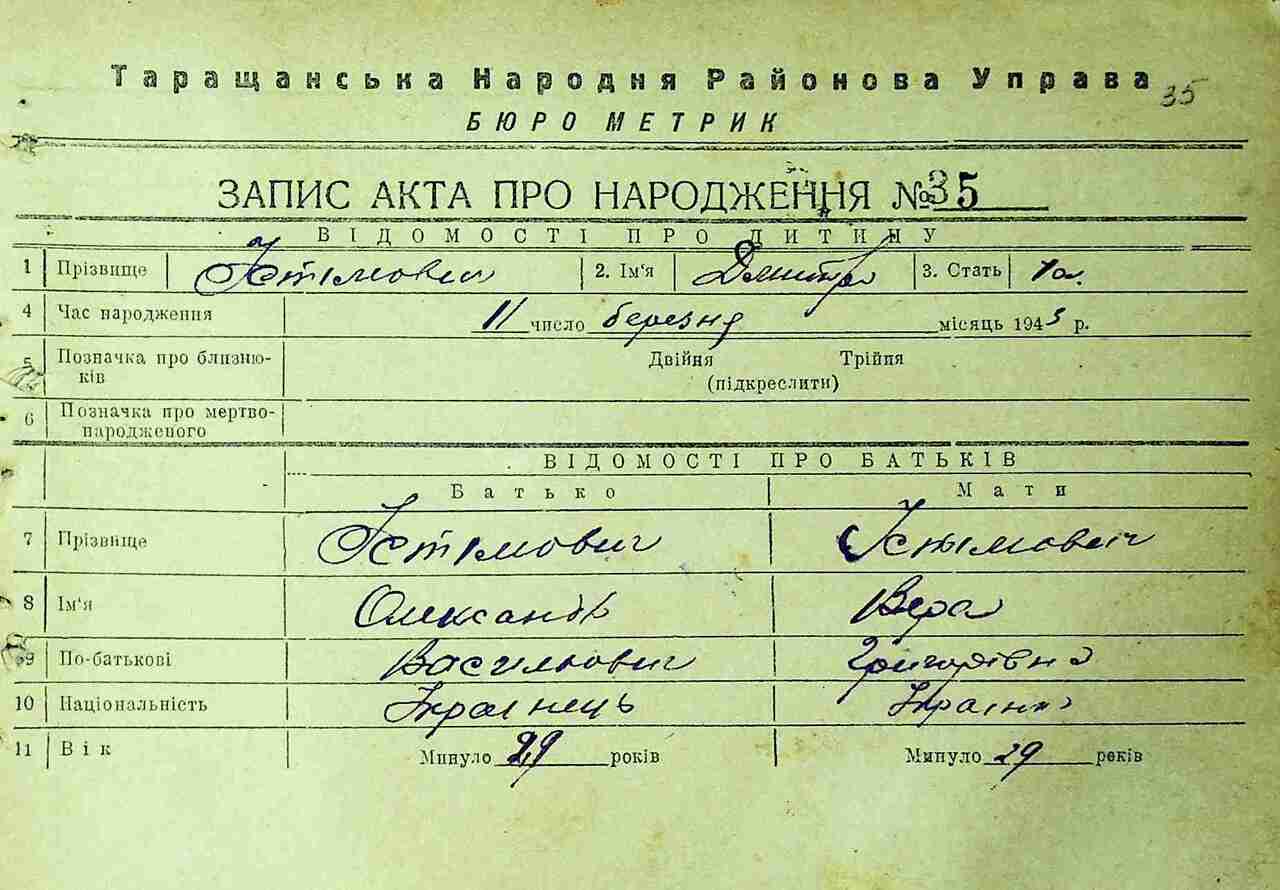 Таращанська Народня Районова Управа 35
БЮРО МЕТРИК
ЗАПИС АКТА ПРО НАРОДЖЕННЯ № 35
ВІДОМОСТІ ПРО ДИТИНУ
1 Прізвище Устімович 2. Ім'я Дмитро 3. Стать
4 Час народження 11 число березня місяць 1943 р.
5 Позначка про близню- Двійня Трійня
ків (підкреслити)
6 Позначка про мертво-
народженого
ВІДОМОСТІ ПРО БАТЬКІВ
Батько Мати
7 Прізвище Устімович Устімович
8 Ім'я Олександр Вера
9 По-батькові Васильович Григорівна
10 Національність Українець Українка
11 Вік Минуло 29 років Минуло 29 років